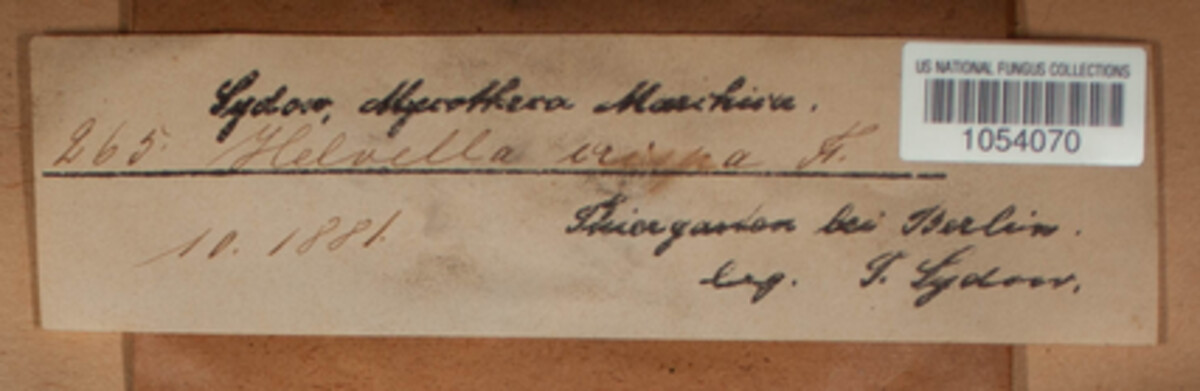 Sydow, Mycotheca Marchica.
265. Helvella crispa Fr.
10. 1881.
Thiergarten bei Berlin.
leg. P. Sydow.
US NATIONAL FUNGUS COLLECTIONS
1054070